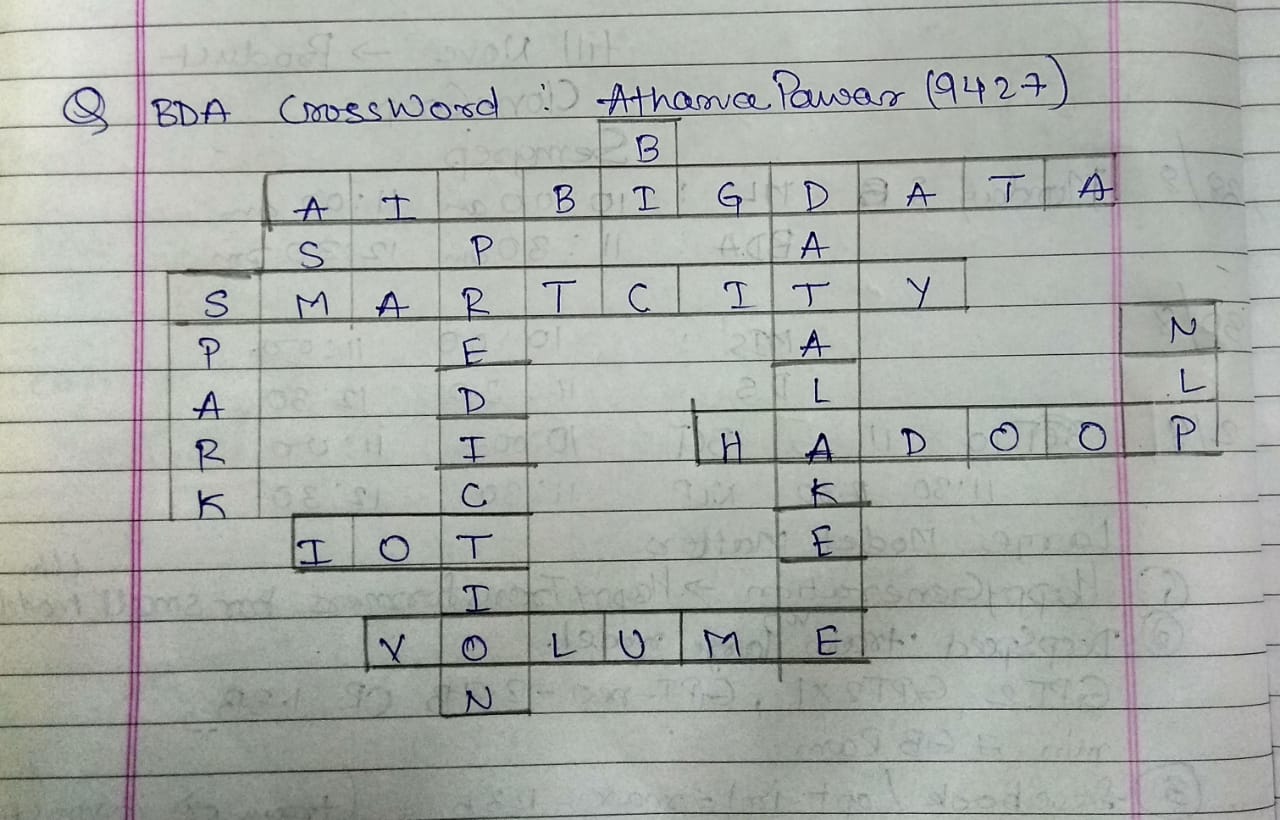 Q BDA CrossWord : Atharva Pawar (9427)
B
A I B I G D A T A
S P A
S M A R T C I T Y
N
P E A
L
A D L
R I H A D O O P
K C K
I O T E
I
V O L U M E
N